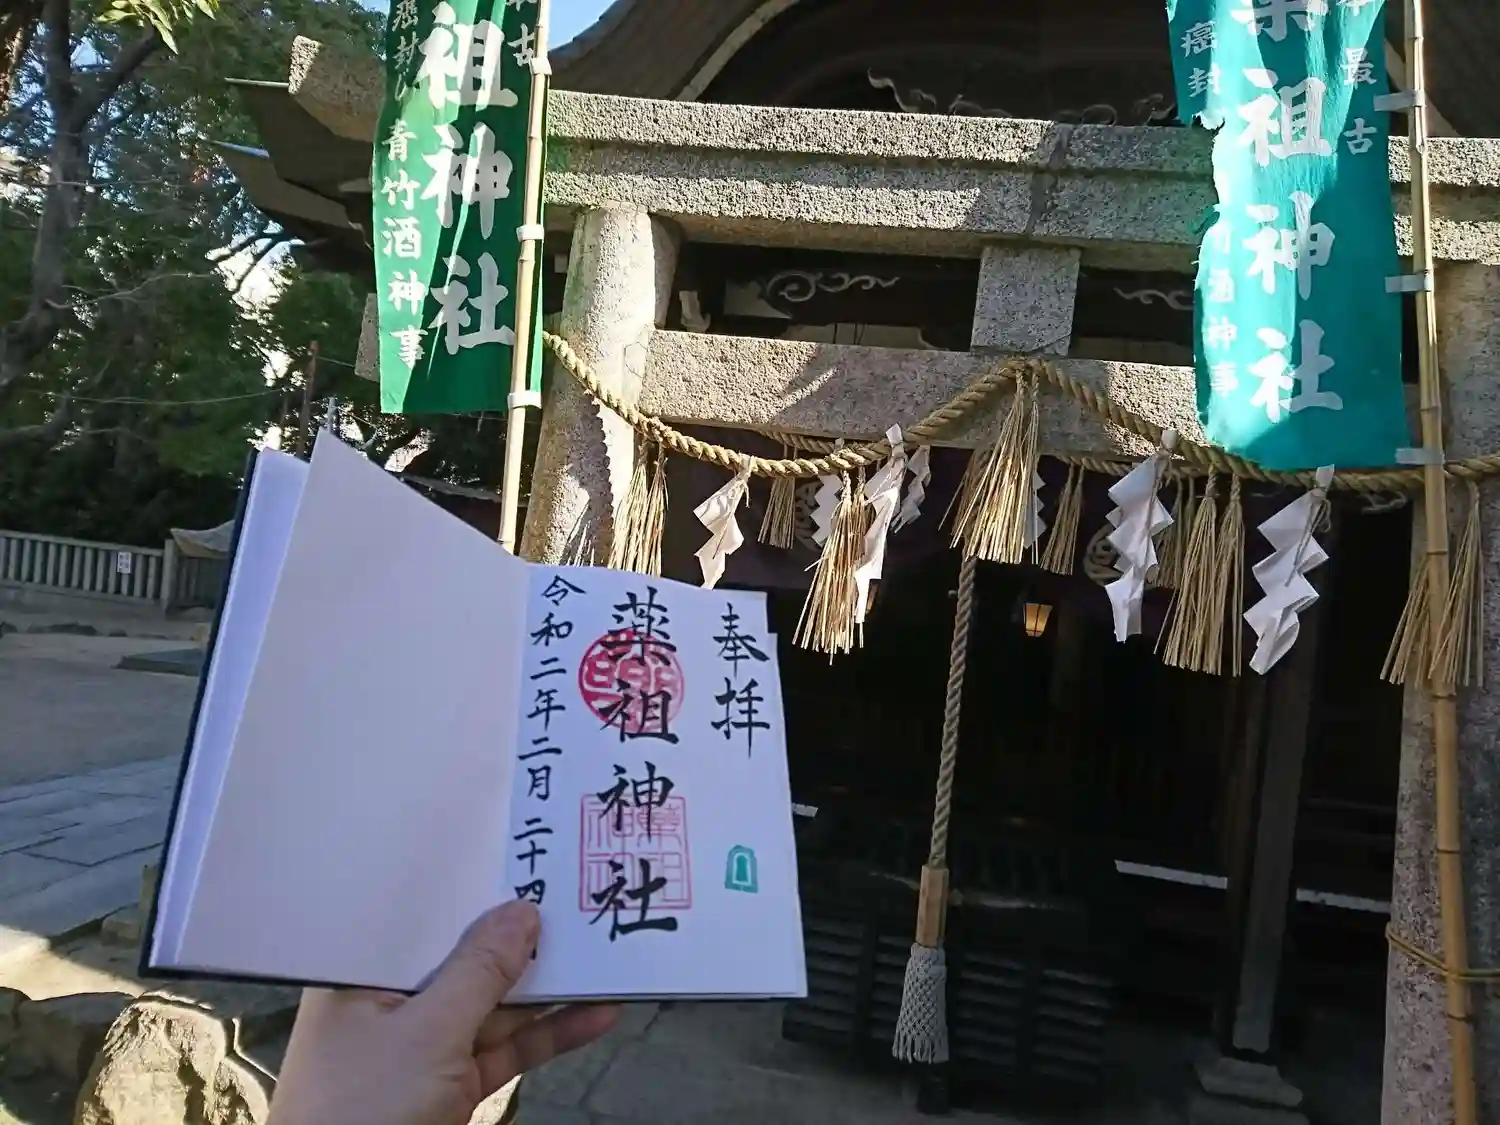 最古
祖神社
癌封じ
青竹酒神事
最古
薬祖神社
癌封
酒神事
奉拝
薬祖神社
令和二年二月二十四